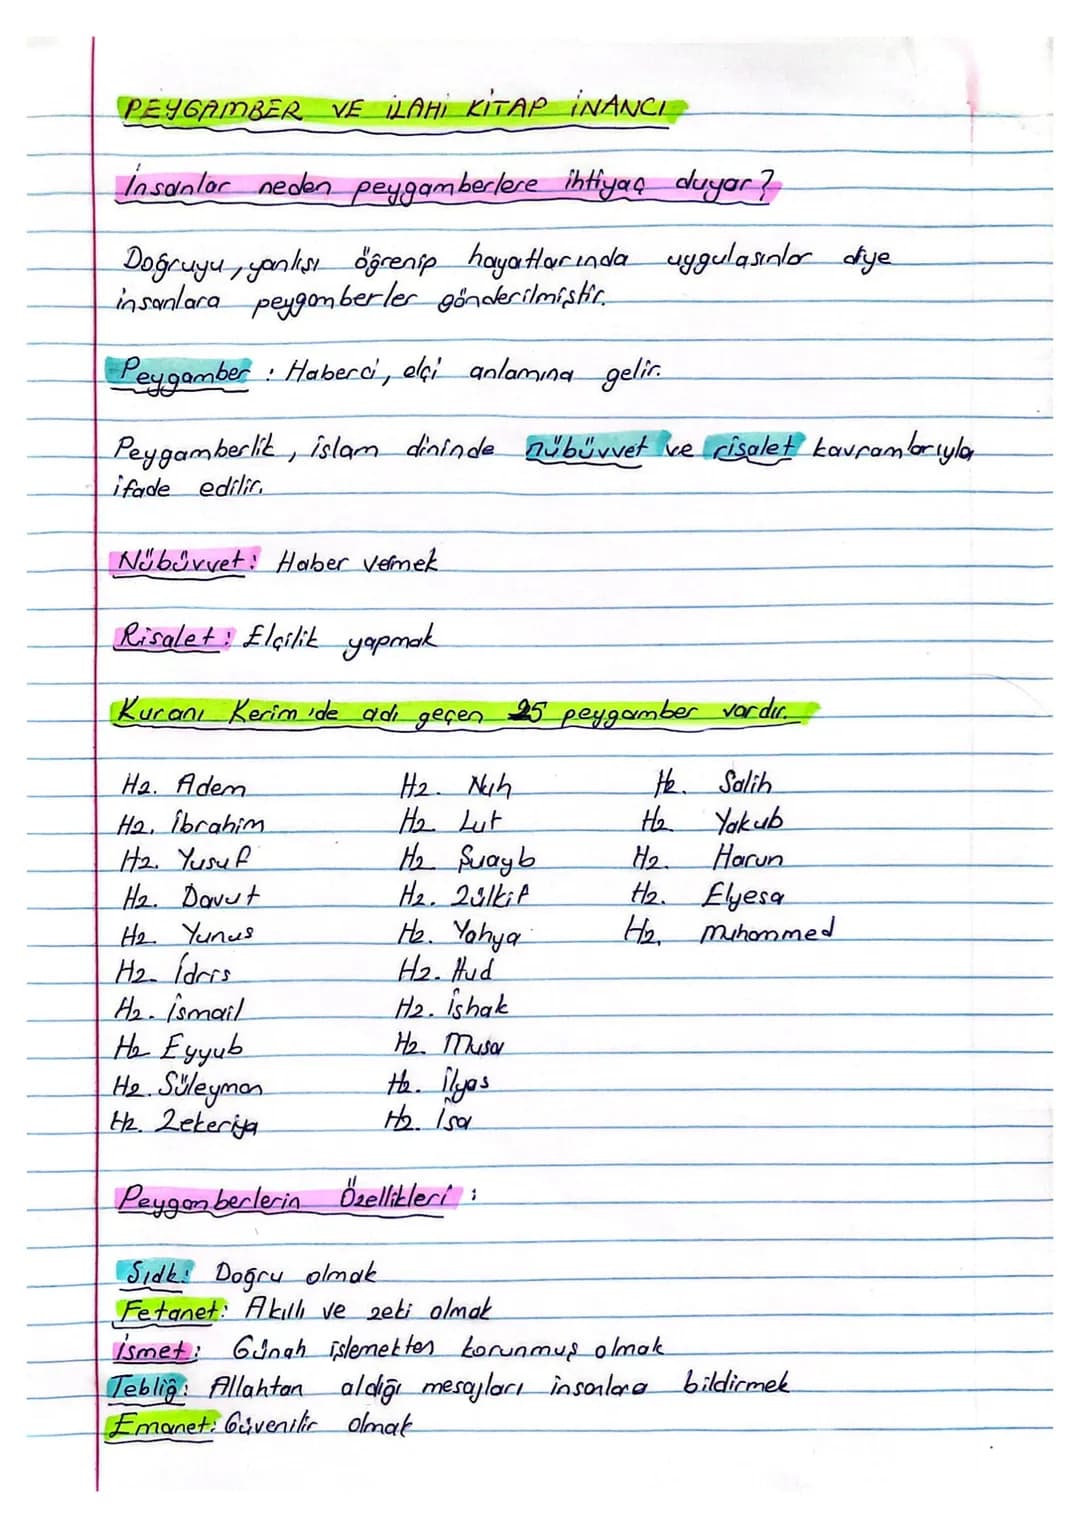 PEYGAMBER VE İLAHİ KİTAP İNANCI
İnsanlar neden peygamberlere ihtiyaç duyar?
Doğruyu, yanlışı öğrenip hayatlarında uygulasınlar diye
insanlara peygamberler gönderilmiştir.
Peygamber : Haberci, elçi anlamına gelir.
Peygamberlik, islam dininde nübüvvet ve risalet kavramlarıyla
ifade edilir.
Nübüvvet: Haber vermek
Risalet: Elçilik yapmak
Kuranı Kerim'de adı geçen 25 peygamber vardır.
Hz. Adem Hz. Nuh Hz. Salih
Hz. İbrahim Hz Lut Hz Yakub
Hz. Yusuf Hz Şuayb Hz. Harun
Hz. Davut Hz. Zülkif Hz. Elyesa
Hz. Yunus Hz. Yahya Hz. Muhammed
Hz. İdris Hz. Hud
Hz. İsmail Hz. İshak
Hz Eyyub Hz. Musa
Hz. Süleyman Hz. İlyas
Hz. Zekeriya Hz. İsa
Peygamberlerin Özellikleri :
Sıdk: Doğru olmak
Fetanet: Akıllı ve zeki olmak
İsmet: Günah işlemekten korunmuş olmak
Tebliğ: Allahtan aldığı mesajları insanlara bildirmek
Emanet: Güvenilir olmak